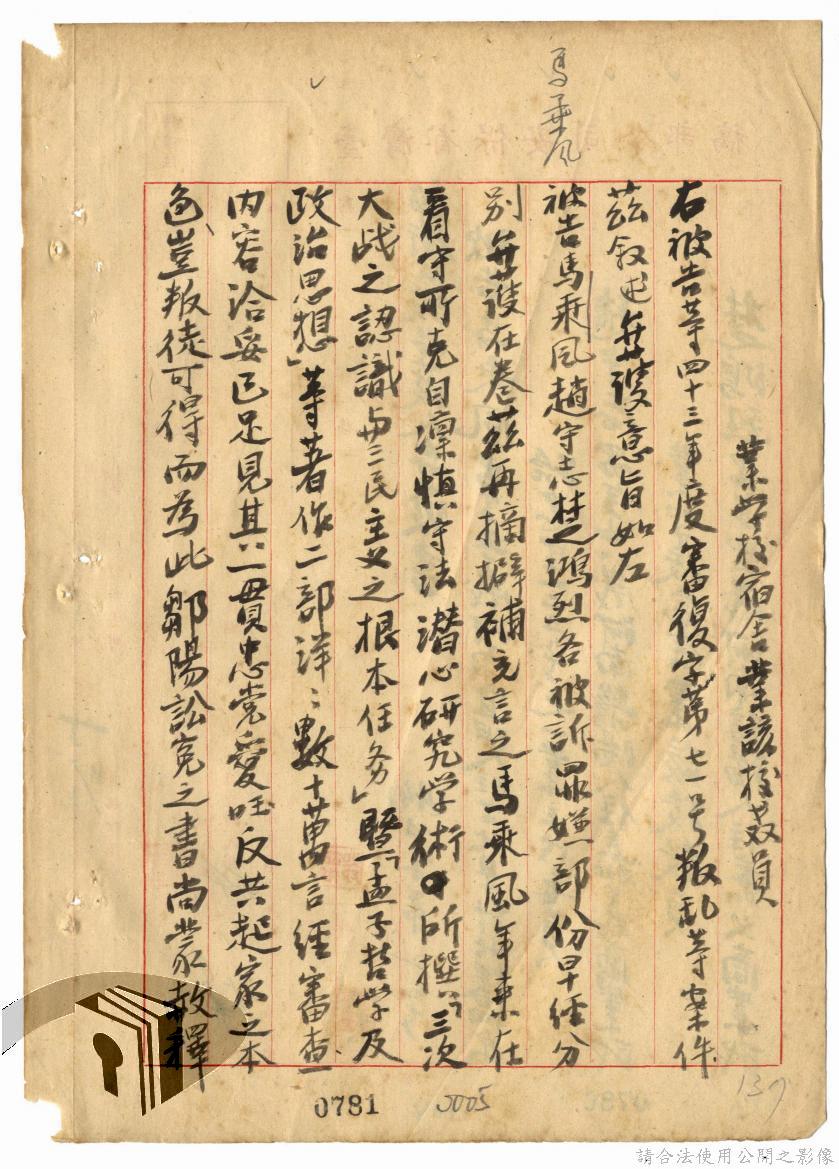 馬乘風
業學校宿舍業該校教員
右被告等四十三年度審復字第七一号叛乱等案件
茲叙述弁護意旨如左
被告馬乘風趙守志楚鴻烈各被訴罪嫌部份早經分
別弁護在卷茲再摘擗補充言之馬乘風年來在
看守所克自凛慎守法潜心研究学術所撰「三次
大战之認識与三民主义之根本任务」暨「孟子哲学及
政治思想」等著作二部洋〻數十萬言經審查
内容洽妥已足見其一貫忠党愛国反共起家之本
色豈叛徒可得而為此鄒陽訟冤之書尚蒙赦釋
0781
0005
137
請合法使用公開之影像